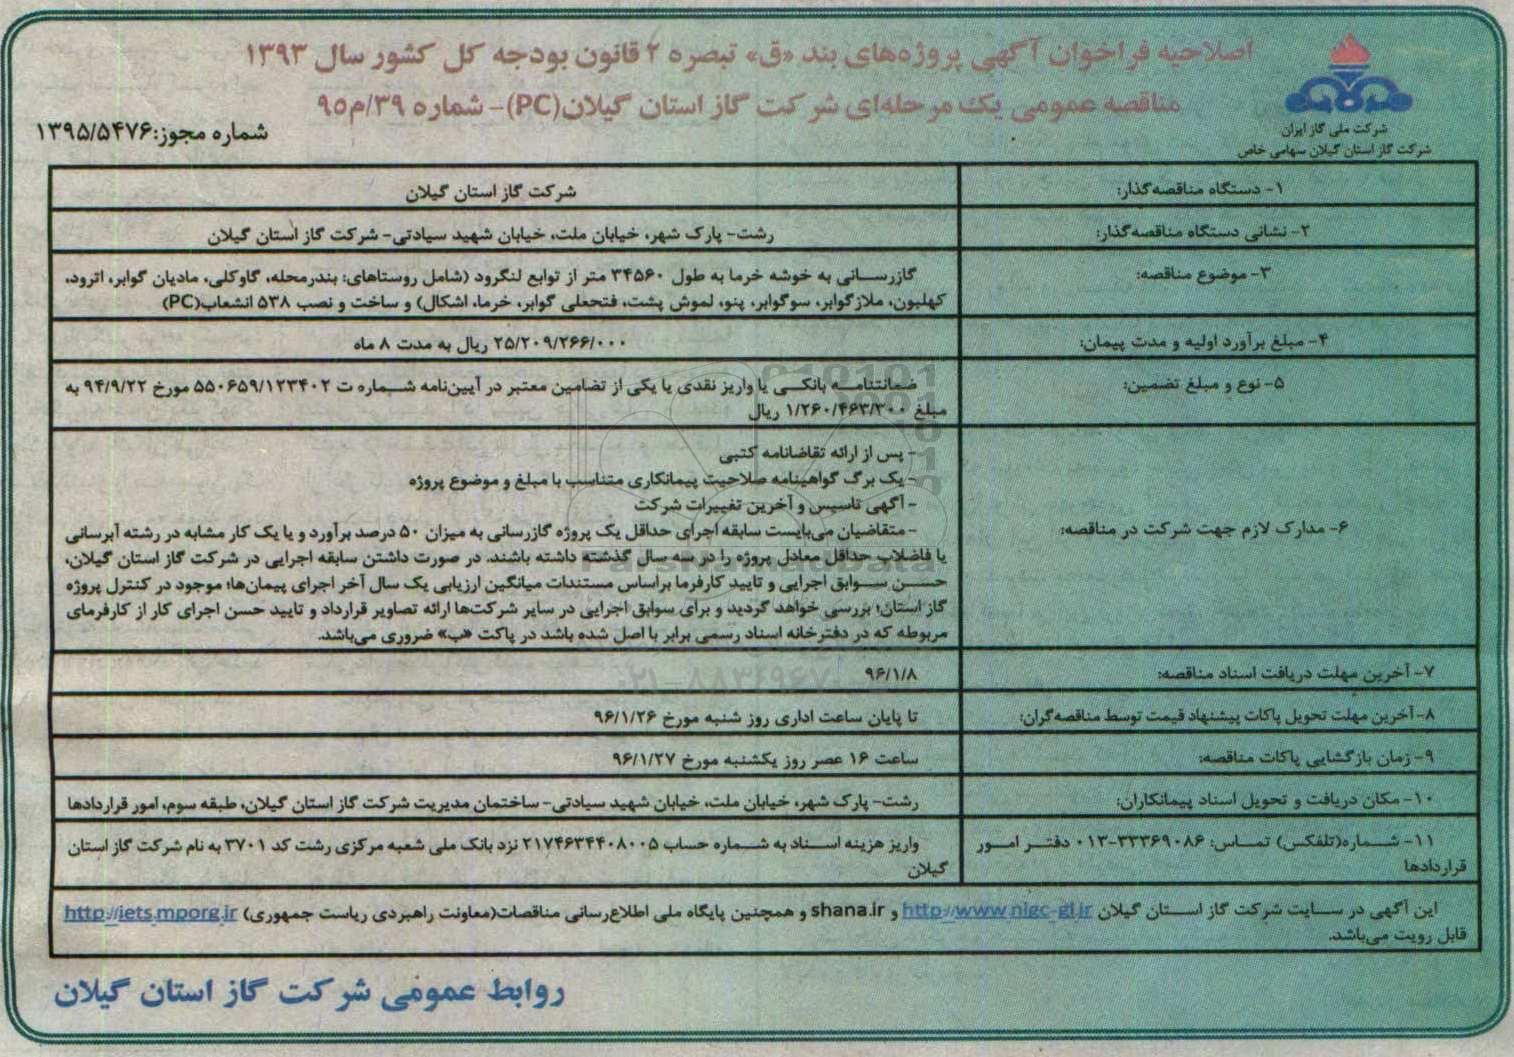 اصلاحیه فراخوان آگهی پروژه‌های بند «ق» تبصره ۲ قانون بودجه کل کشور سال ۱۳۹۳
مناقصه عمومی یک مرحله‌ای شرکت گاز استان گیلان(PC)- شماره ۳۹/م۹۵
شماره مجوز:۱۳۹۵/۵۴۷۶
شرکت ملی گاز ایران
شرکت گاز استان گیلان سهامی خاص
۱- دستگاه مناقصه‌گذار:
شرکت گاز استان گیلان
۲- نشانی دستگاه مناقصه‌گذار:
رشت- پارک شهر، خیابان ملت، خیابان شهید سیادتی- شرکت گاز استان گیلان
۳- موضوع مناقصه:
گازرسانی به خوشه خرما به طول ۳۴۵۶۰ متر از توابع لنگرود (شامل روستاهای: بندرمحله، گاوکلی، مادیان گوابر، اترود،
کهلبون، ملازگوابر، سوگوابر، پنو، لموش پشت، فتحعلی گوابر، خرما، اشکال) و ساخت و نصب ۵۳۸ انشعاب(PC)
۴- مبلغ برآورد اولیه و مدت پیمان:
۲۵/۲۰۹/۲۶۶/۰۰۰ ریال به مدت ۸ ماه
۵- نوع و مبلغ تضمین:
ضمانتنامه بانکی یا واریز نقدی یا یکی از تضامین معتبر در آیین‌نامه شماره ت ۵۵۰۶۵۹/۱۲۳۴۰۲ مورخ ۹۴/۹/۲۲ به
مبلغ ۱/۲۶۰/۴۶۳/۳۰۰ ریال
۶- مدارک لازم جهت شرکت در مناقصه:
- پس از ارائه تقاضانامه کتبی
- یک برگ گواهینامه صلاحیت پیمانکاری متناسب با مبلغ و موضوع پروژه
- آگهی تاسیس و آخرین تغییرات شرکت
- متقاضیان می‌بایست سابقه اجرای حداقل یک پروژه گازرسانی به میزان ۵۰ درصد برآورد و یا یک کار مشابه در رشته آبرسانی
یا فاضلاب حداقل معادل پروژه را در سه سال گذشته داشته باشند. در صورت داشتن سابقه اجرایی در شرکت گاز استان گیلان،
حسن سوابق اجرایی و تایید کارفرما براساس مستندات میانگین ارزیابی یک سال آخر اجرای پیمان‌ها؛ موجود در کنترل پروژه
گاز استان؛ بررسی خواهد گردید و برای سوابق اجرایی در سایر شرکت‌ها ارائه تصاویر قرارداد و تایید حسن اجرای کار از کارفرمای
مربوطه که در دفترخانه اسناد رسمی برابر با اصل شده باشد در پاکت «ب» ضروری می‌باشد.
۷- آخرین مهلت دریافت اسناد مناقصه:
۹۶/۱/۸
۸- آخرین مهلت تحویل پاکات پیشنهاد قیمت توسط مناقصه‌گران:
تا پایان ساعت اداری روز شنبه مورخ ۹۶/۱/۲۶
۹- زمان بازگشایی پاکات مناقصه:
ساعت ۱۶ عصر روز یکشنبه مورخ ۹۶/۱/۲۷
۱۰- مکان دریافت و تحویل اسناد پیمانکاران:
رشت- پارک شهر، خیابان ملت، خیابان شهید سیادتی- ساختمان مدیریت شرکت گاز استان گیلان، طبقه سوم، امور قراردادها
۱۱- شماره(تلفکس) تماس: ۳۳۳۶۹۰۸۶-۰۱۳ دفتر امور
قراردادها
واریز هزینه اسناد به شماره حساب ۲۱۷۴۶۳۴۴۰۸۰۰۵ نزد بانک ملی شعبه مرکزی رشت کد ۳۷۰۱ به نام شرکت گاز استان
گیلان
این آگهی در سایت شرکت گاز استان گیلان http://www.nigc-gl.ir و shana.ir و همچنین پایگاه ملی اطلاع‌رسانی مناقصات(معاونت راهبردی ریاست جمهوری) http://iets.mporg.ir
قابل رویت می‌باشد.
روابط عمومی شرکت گاز استان گیلان